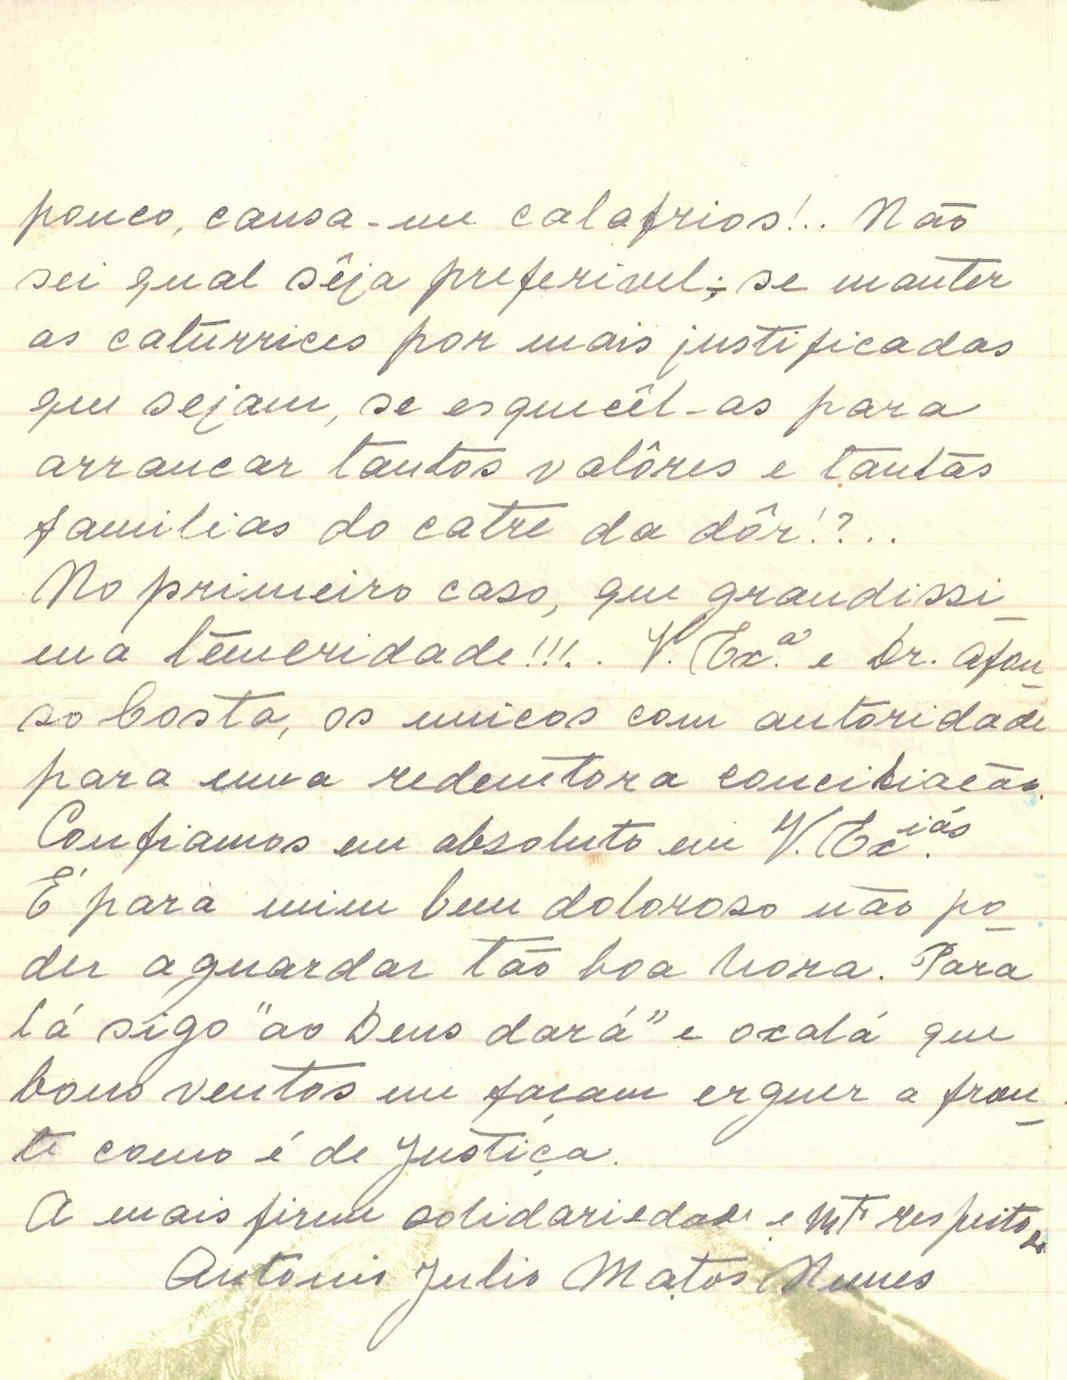 pouco, causa-me calafrios!.. Não
sei qual sêja preferivel; se manter
as caturrices por mais justificadas
que sejam, se esquecêl-as para
arrancar tantos valôres e tantas
familias do catre da dôr!?..
No primeiro caso, que grandissi_
ma temeridade!!!.. V. Ex.ª e Dr. Afon_
so Costa, os unicos com autoridade
para uma redentora conciliação.
Confiamos em absoluto em V. Ex.iás
É para mim bem doloroso não po_
der aguardar tão boa hora. Para
lá sigo "ao Deus dará" e oxalá que
bons ventos me façam erguer a fron_
te como é de Justiça.
A mais firme solidariedade e mt respeitoso
Antonio Julio Matos Nunes